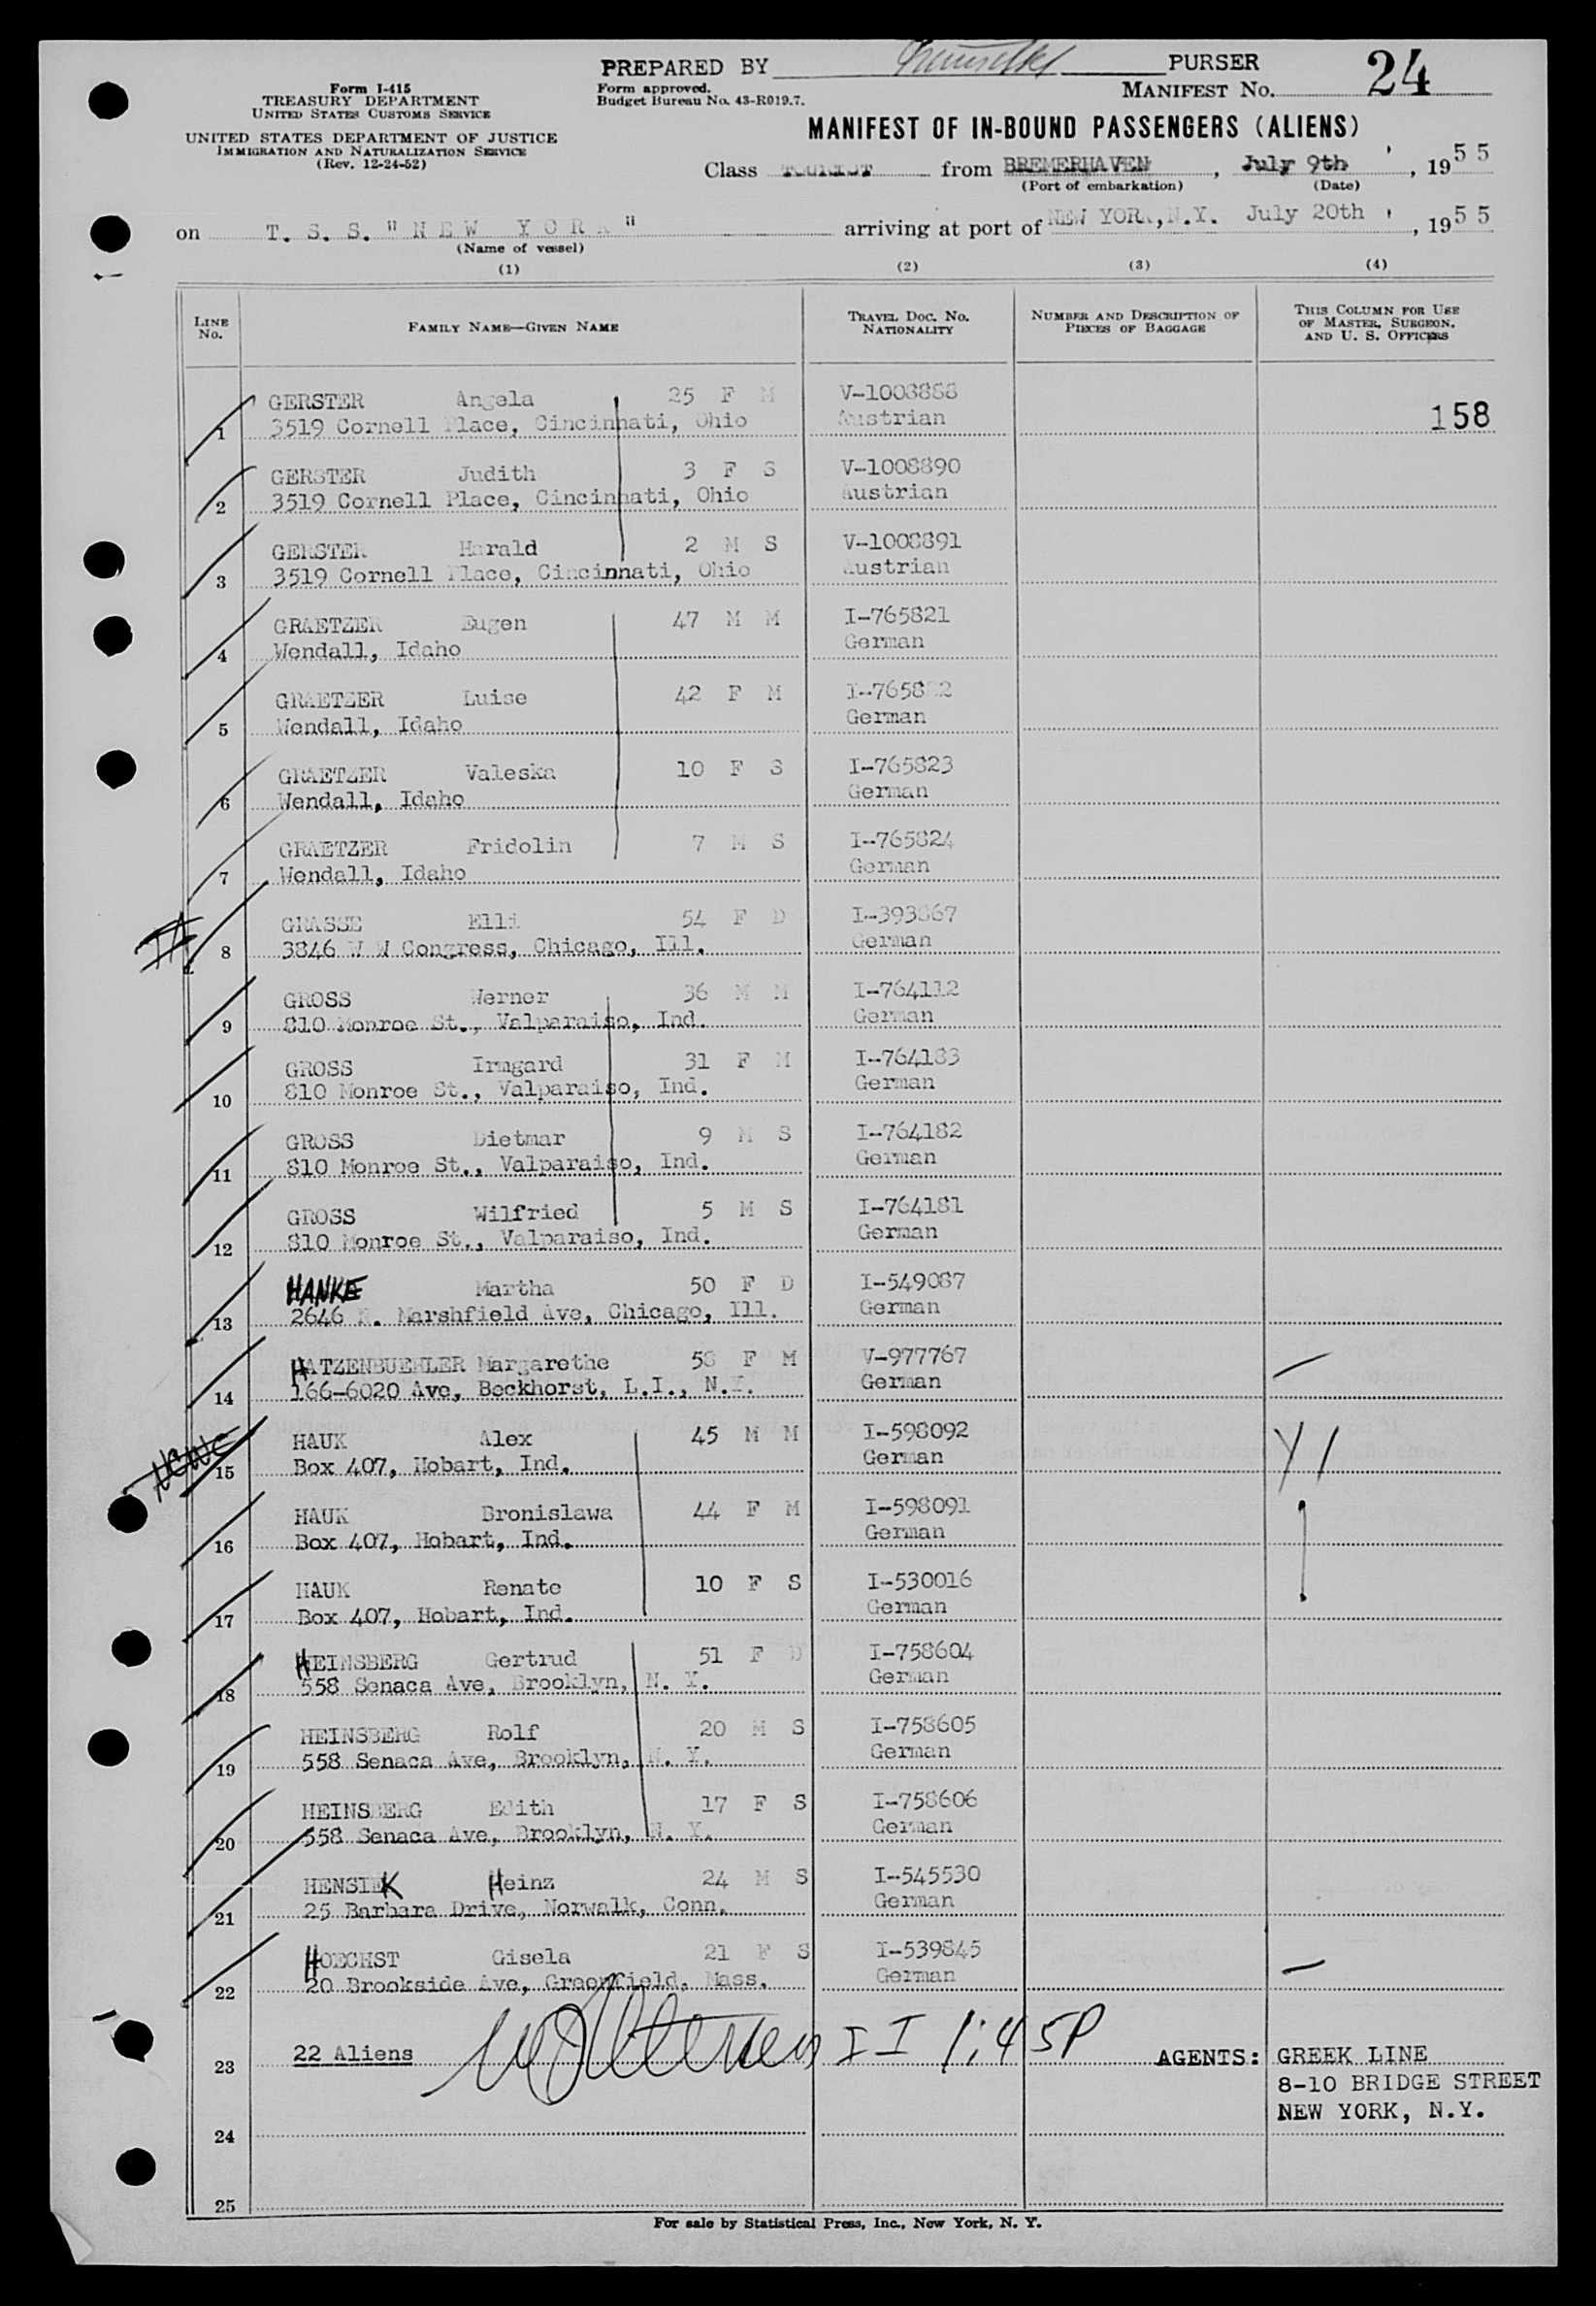 PREPARED BY PURSER
Form I-415
TREASURY DEPARTMENT
UNITED STATES CUSTOMS SERVICE
UNITED STATES DEPARTMENT OF JUSTICE
IMMIGRATION AND NATURALIZATION SERVICE
(Rev. 12-24-52)
Form approved.
Budget Bureau No. 43-R019.7.
MANIFEST NO. 24
MANIFEST OF IN-BOUND PASSENGERS (ALIENS)
Class TOURIST from BREMERHAVEN, July 9th, 1955
(Port of embarkation) (Date)
on T. S. S. "NEW YORK" arriving at port of NEW YORK, N.Y. July 20th, 1955
(Name of vessel)
(1) (2) (3) (4)
LINE No. FAMILY NAME—GIVEN NAME TRAVEL DOC. NO. NATIONALITY NUMBER AND DESCRIPTION OF PIECES OF BAGGAGE THIS COLUMN FOR USE OF MASTER, SURGEON, AND U. S. OFFICERS
GERSTER Angela 25 F M V-1008888
1 3519 Cornell Place, Cincinnati, Ohio Austrian 158
GERSTER Judith 3 F S V-1008890
2 3519 Cornell Place, Cincinnati, Ohio Austrian
GERSTER Harald 2 M S V-1008891
3 3519 Cornell Place, Cincinnati, Ohio Austrian
GRAETZER Eugen 47 M M I-765821
4 Wendall, Idaho German
GRAETZER Luise 42 F M I-765822
5 Wendall, Idaho German
GRAETZER Valeska 10 F S I-765823
6 Wendall, Idaho German
GRAETZER Fridolin 7 M S I-765824
7 Wendall, Idaho German
GRASSE Elli 54 F D I-393867
8 3846 W W Congress, Chicago, Ill. German
GROSS Werner 36 M M I-764112
9 810 Monroe St., Valparaiso, Ind. German
GROSS Irmgard 31 F M I-764183
10 810 Monroe St., Valparaiso, Ind. German
GROSS Dietmar 9 M S I-764182
11 810 Monroe St., Valparaiso, Ind. German
GROSS Wilfried 5 M S I-764181
12 810 Monroe St., Valparaiso, Ind. German
HANKE Martha 50 F D I-549087
13 2646 N. Marshfield Ave, Chicago, Ill. German
HATZENBUEHLER Margarethe 58 F M V-977767
14 166-6020 Ave, Beckhorst, L.I., N.Y. German
HAUK Alex 45 M M I-598092
NCWC 15 Box 407, Hobart, Ind. German
HAUK Bronislawa 44 F M I-598091
16 Box 407, Hobart, Ind. German
HAUK Renate 10 F S I-530016
17 Box 407, Hobart, Ind. German
HEINSBERG Gertrud 51 F D I-758604
18 558 Senaca Ave, Brooklyn, N. Y. German
HEINSBERG Rolf 20 M S I-758605
19 558 Senaca Ave, Brooklyn, N. Y. German
HEINSBERG Edith 17 F S I-758606
20 558 Senaca Ave, Brooklyn, N. Y. German
HENSIEK Heinz 24 M S I-545530
21 25 Barbara Drive, Norwalk, Conn. German
HOECHST Gisela 21 F S I-539845
22 20 Brookside Ave, Greenfield, Mass. German
23 22 Aliens I I 1:45P AGENTS: GREEK LINE
8-10 BRIDGE STREET
NEW YORK, N.Y.
24
25
For sale by Statistical Press, Inc., New York, N. Y.